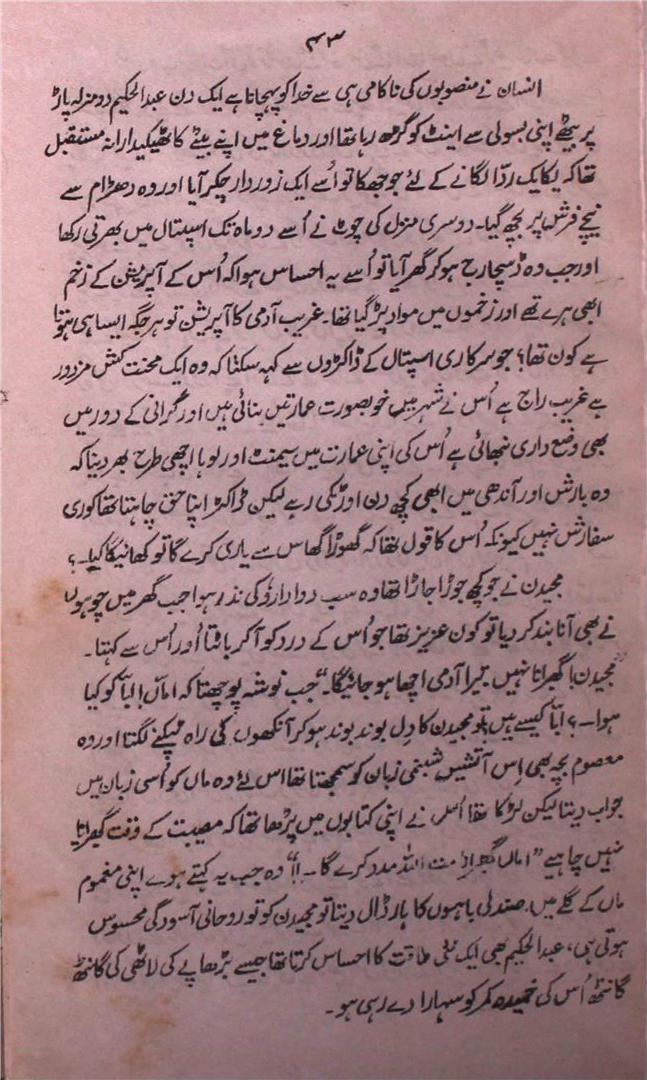 ۴۳
انسان نے منصوبوں کی ناکامی ہی سے خدا کو پہچانا ہے ایک دن عبدالحکیم دو منزلہ پاڑ
پر بیٹھے اپنی بسولی سے اینٹ کو گڑھ رہا تھا اور دماغ میں اپنے بیٹے کا ٹھیکیدارانہ مستقبل
تھا کہ یکایک ردّا لگانے کے لئے جو جھکا تو اُسے ایک زوردار چکر آیا اور وہ دھڑام سے
نیچے فرش پر بچھ گیا۔ دوسری منزل کی چوٹ نے اُسے دو ماہ تک اسپتال میں بھرتی رکھا
اور جب وہ ڈسچارج ہو کر گھر آیا تو اُسے یہ احساس ہوا کہ اُس کے آپریشن کے زخم
ابھی ہرے تھے اور زخموں میں مواد پڑ گیا تھا۔ غریب آدمی کا آپریشن تو ہر جگہ ایسا ہی ہوتا
ہے کون تھا؟ جو سرکاری اسپتال کے ڈاکڑوں سے کہہ سکتا کہ وہ ایک محنت کش مزدور
ہے غریب راج ہے اُس نے شہر میں خوبصورت عمارتیں بنائی ہیں اور گرانی کے دور میں
بھی وضع داری نبھائی ہے اُس کی اپنی عمارت میں سیمنٹ اور لوہا اچھی طرح بھر دینا کہ
وہ بارش اور آندھی میں ابھی کچھ دن اور ٹکی رہے لیکن ڈاکٹر اپنا حق چاہتا تھا کوری
سفارش نہیں کیونکہ اُس کا قول تھا کہ گھوڑا گھاس سے یاری کرے گا تو کھائیگا کیا۔؟
مجیدن نے جو کچھ جوڑا جاڑا تھا وہ سب دوا دارو کی نذر ہوا جب گھر میں چوہوں
نے بھی آنا بند کر دیا تو کون عزیز تھا جو اُس کے درد کو آکر بانٹتا اور اُس سے کہتا۔
"مجیدن! گھبرانا نہیں۔ تیرا آدمی اچھا ہو جائیگا۔" جب نوشہ پوچھتا کہ اماں! ابّا کو کیا
ہوا۔؟ ابّا کیسے ہیں؟ تو مجیدن کا دل بوند بوند ہو کر آنکھوں کی راہ ٹپکنے لگتا اور وہ
معصوم بچہ بھی اِس آتشیں شبنمی زبان کو سمجھتا تھا اس لئے وہ ماں کو اُسی زبان میں
جواب دیتا لیکن لڑکا تھا اُس نے اپنی کتابوں میں پڑھا تھا کہ مصیبت کے وقت گھبرانا
نہیں چاہیے "اماں گھبراؤ مت اللہ مدد کرے گا۔!!" وہ جب یہ کہتے ہوے اپنی مغموم
ماں کے گلے میں صندلی باہوں کا ہار ڈال دیتا تو مجیدن کو تو روحانی آسودگی محسوس
ہوتی ہی، عبدالحکیم بھی ایک نئی طاقت کا احساس کرتا تھا جیسے بڑھاپے کی لاٹھی کی گانٹھ
گانٹھ اُس کی خمیدہ کمر کو سہارا دے رہی ہو۔